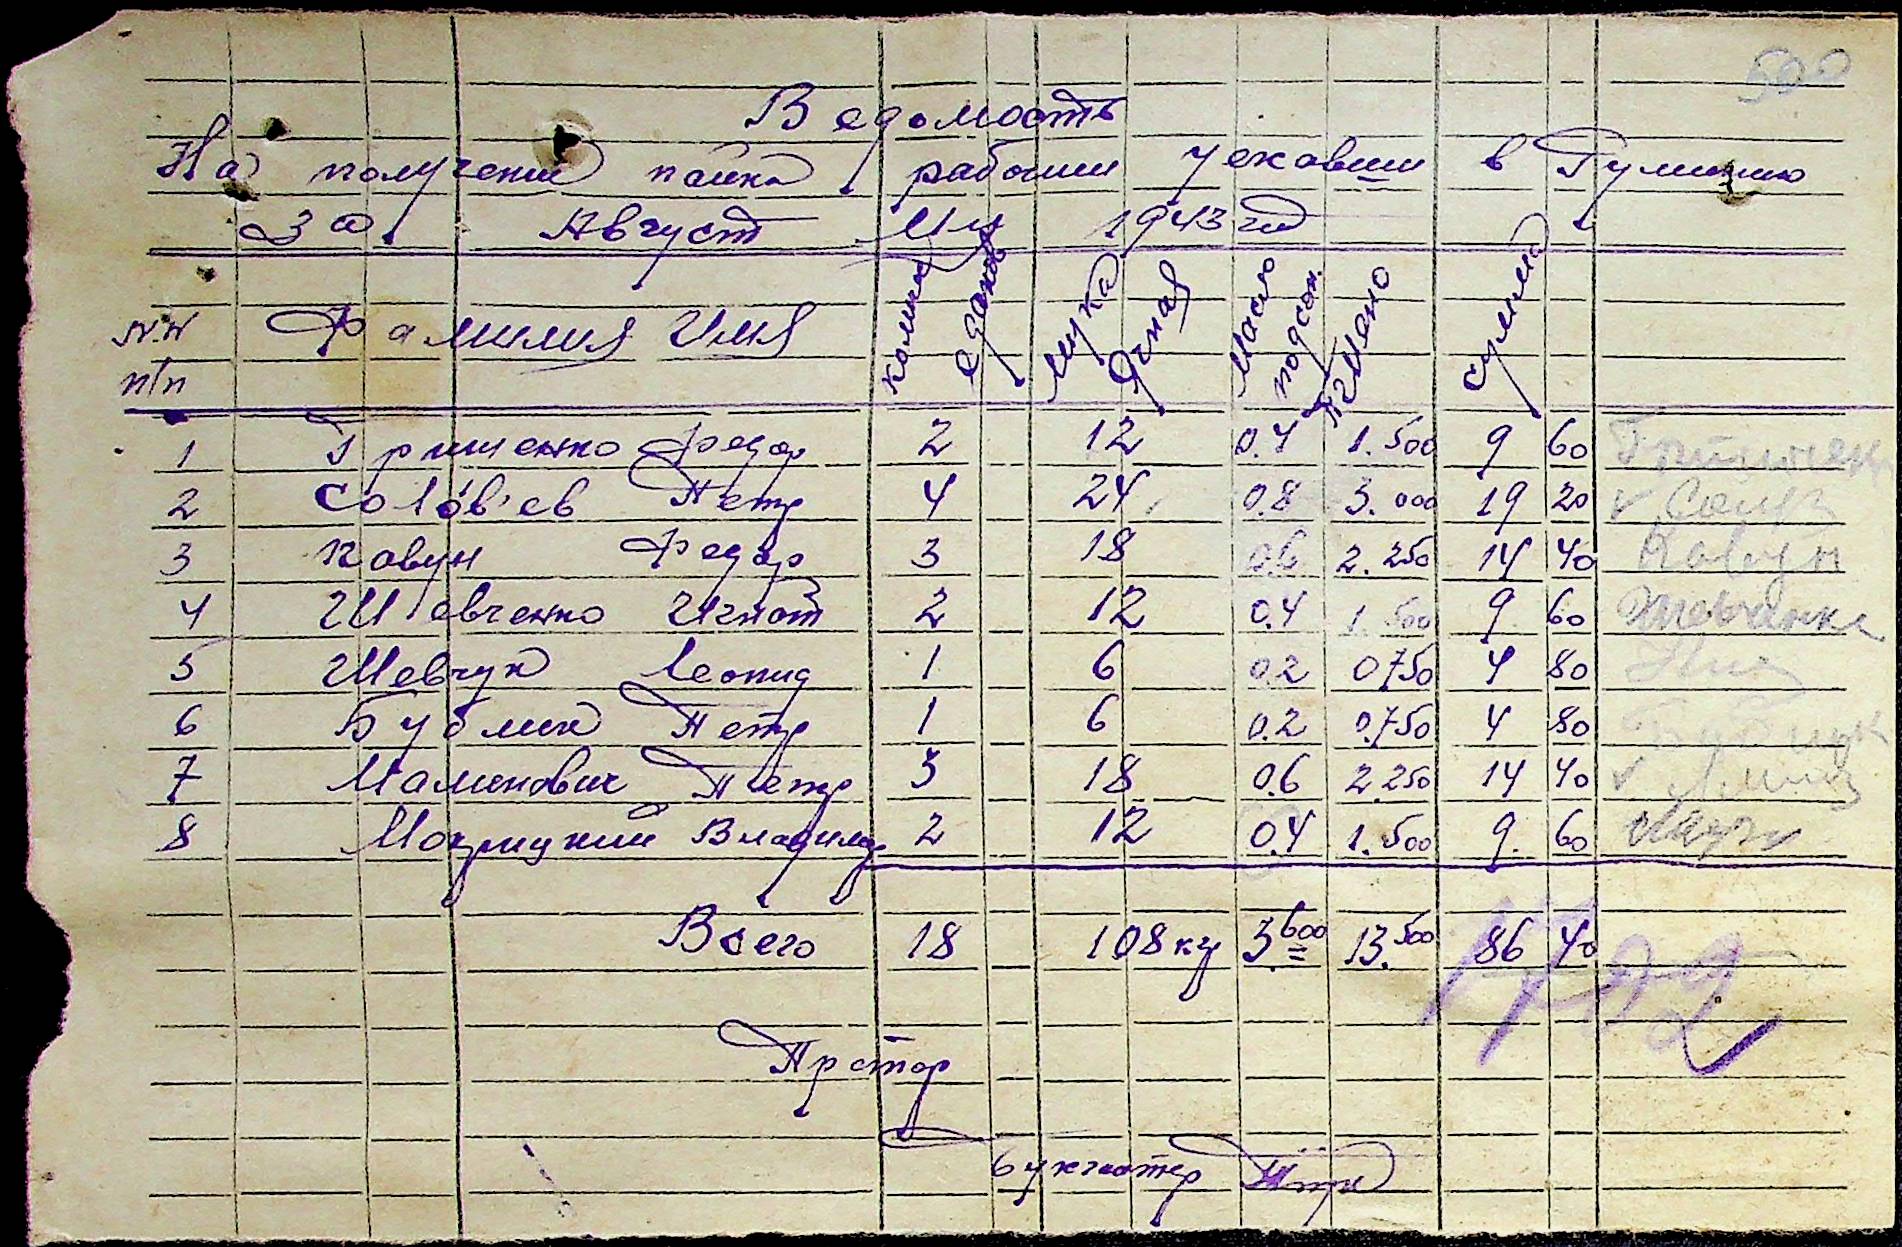 500
Ведомость
На получения пайка рабочим уехавшим в Румынию
За Август М-ц 1943 год
N.N п/п Фамилия Имя колич едоков мука ячная Масло подсон. пшено сумма
1 Грищенко Федор 2 12 0.4 1.500 9 60
2 Солов'ев Петр 4 24 0.8 3.000 19 20
3 Кавун Федор 3 18 0.6 2.250 14 40 Кавун
4 Шевченко Игнат 2 12 0.4 1.500 9 60 Шевченко
5 Шевчук Леонид 1 6 0.2 0750 4 80
6 Бублик Петр 1 6 0.2 0.750 4 80
7 Малинович Петр 3 18 0.6 2.250 14 40
8 Мокрицкий Владимир 2 12 0.4 1.500 9. 60
Всего 18 108 кг 3.600 13.500 86 40
Претор
бухгалтер